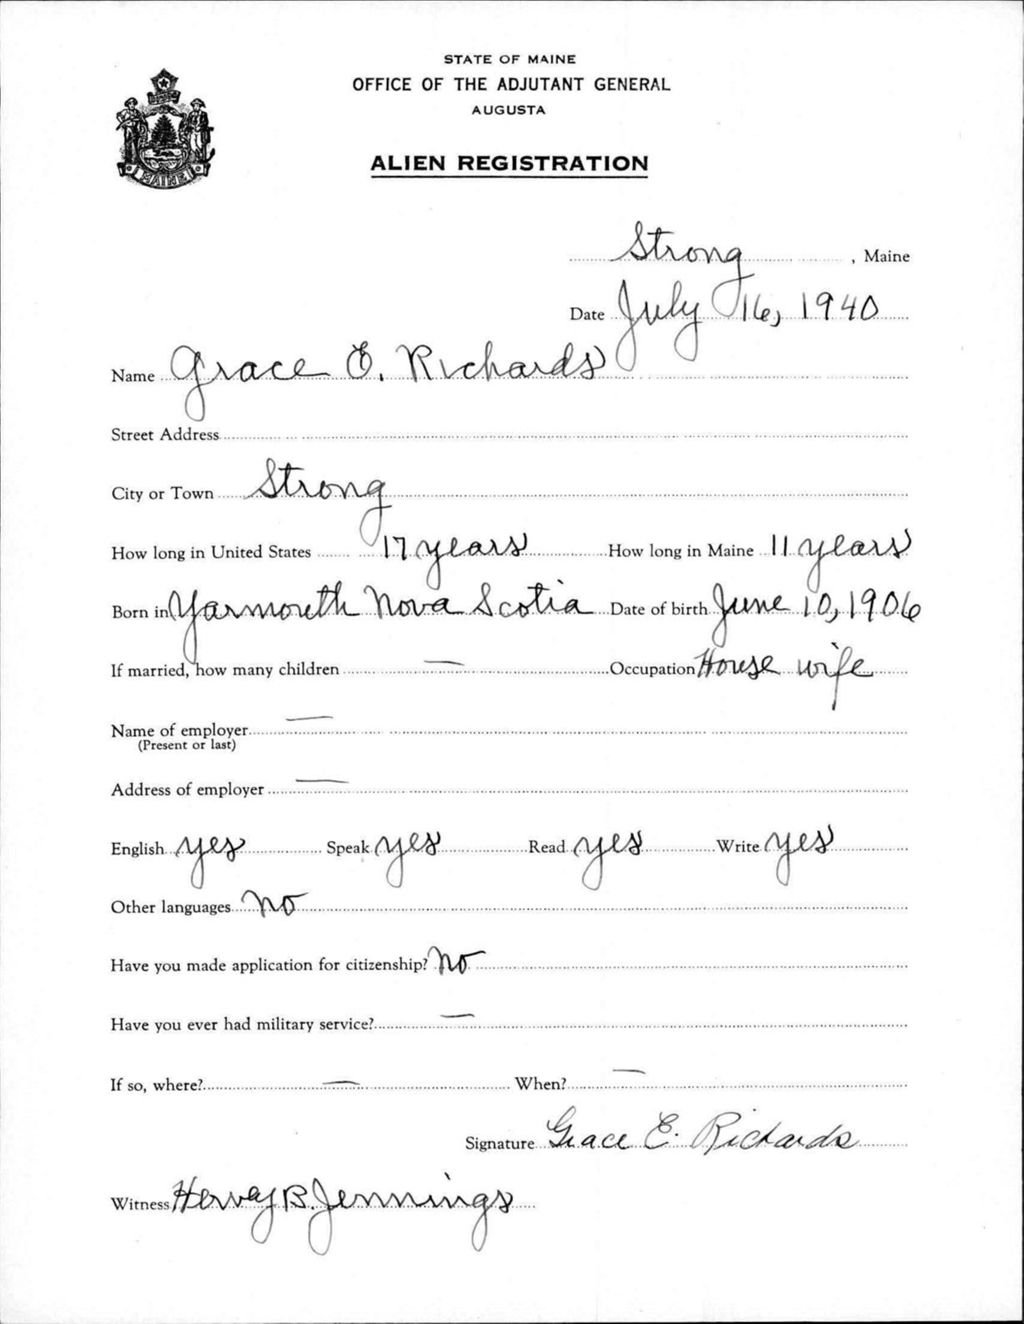 STATE OF MAINE
OFFICE OF THE ADJUTANT GENERAL
AUGUSTA
ALIEN REGISTRATION
MAINE
Strong, Maine
Date July 16, 1940
Name Grace E. Richards
Street Address
City or Town Strong
How long in United States 17 years How long in Maine 11 years
Born in Yarmouth Nova Scotia Date of birth June 10, 1906
If married, how many children — Occupation House wife
Name of employer —
(Present or last)
Address of employer —
English yes Speak yes Read yes Write yes
Other languages No
Have you made application for citizenship? No
Have you ever had military service? —
If so, where? — When? —
Signature Grace E. Richards
Witness Hervey B. Jennings